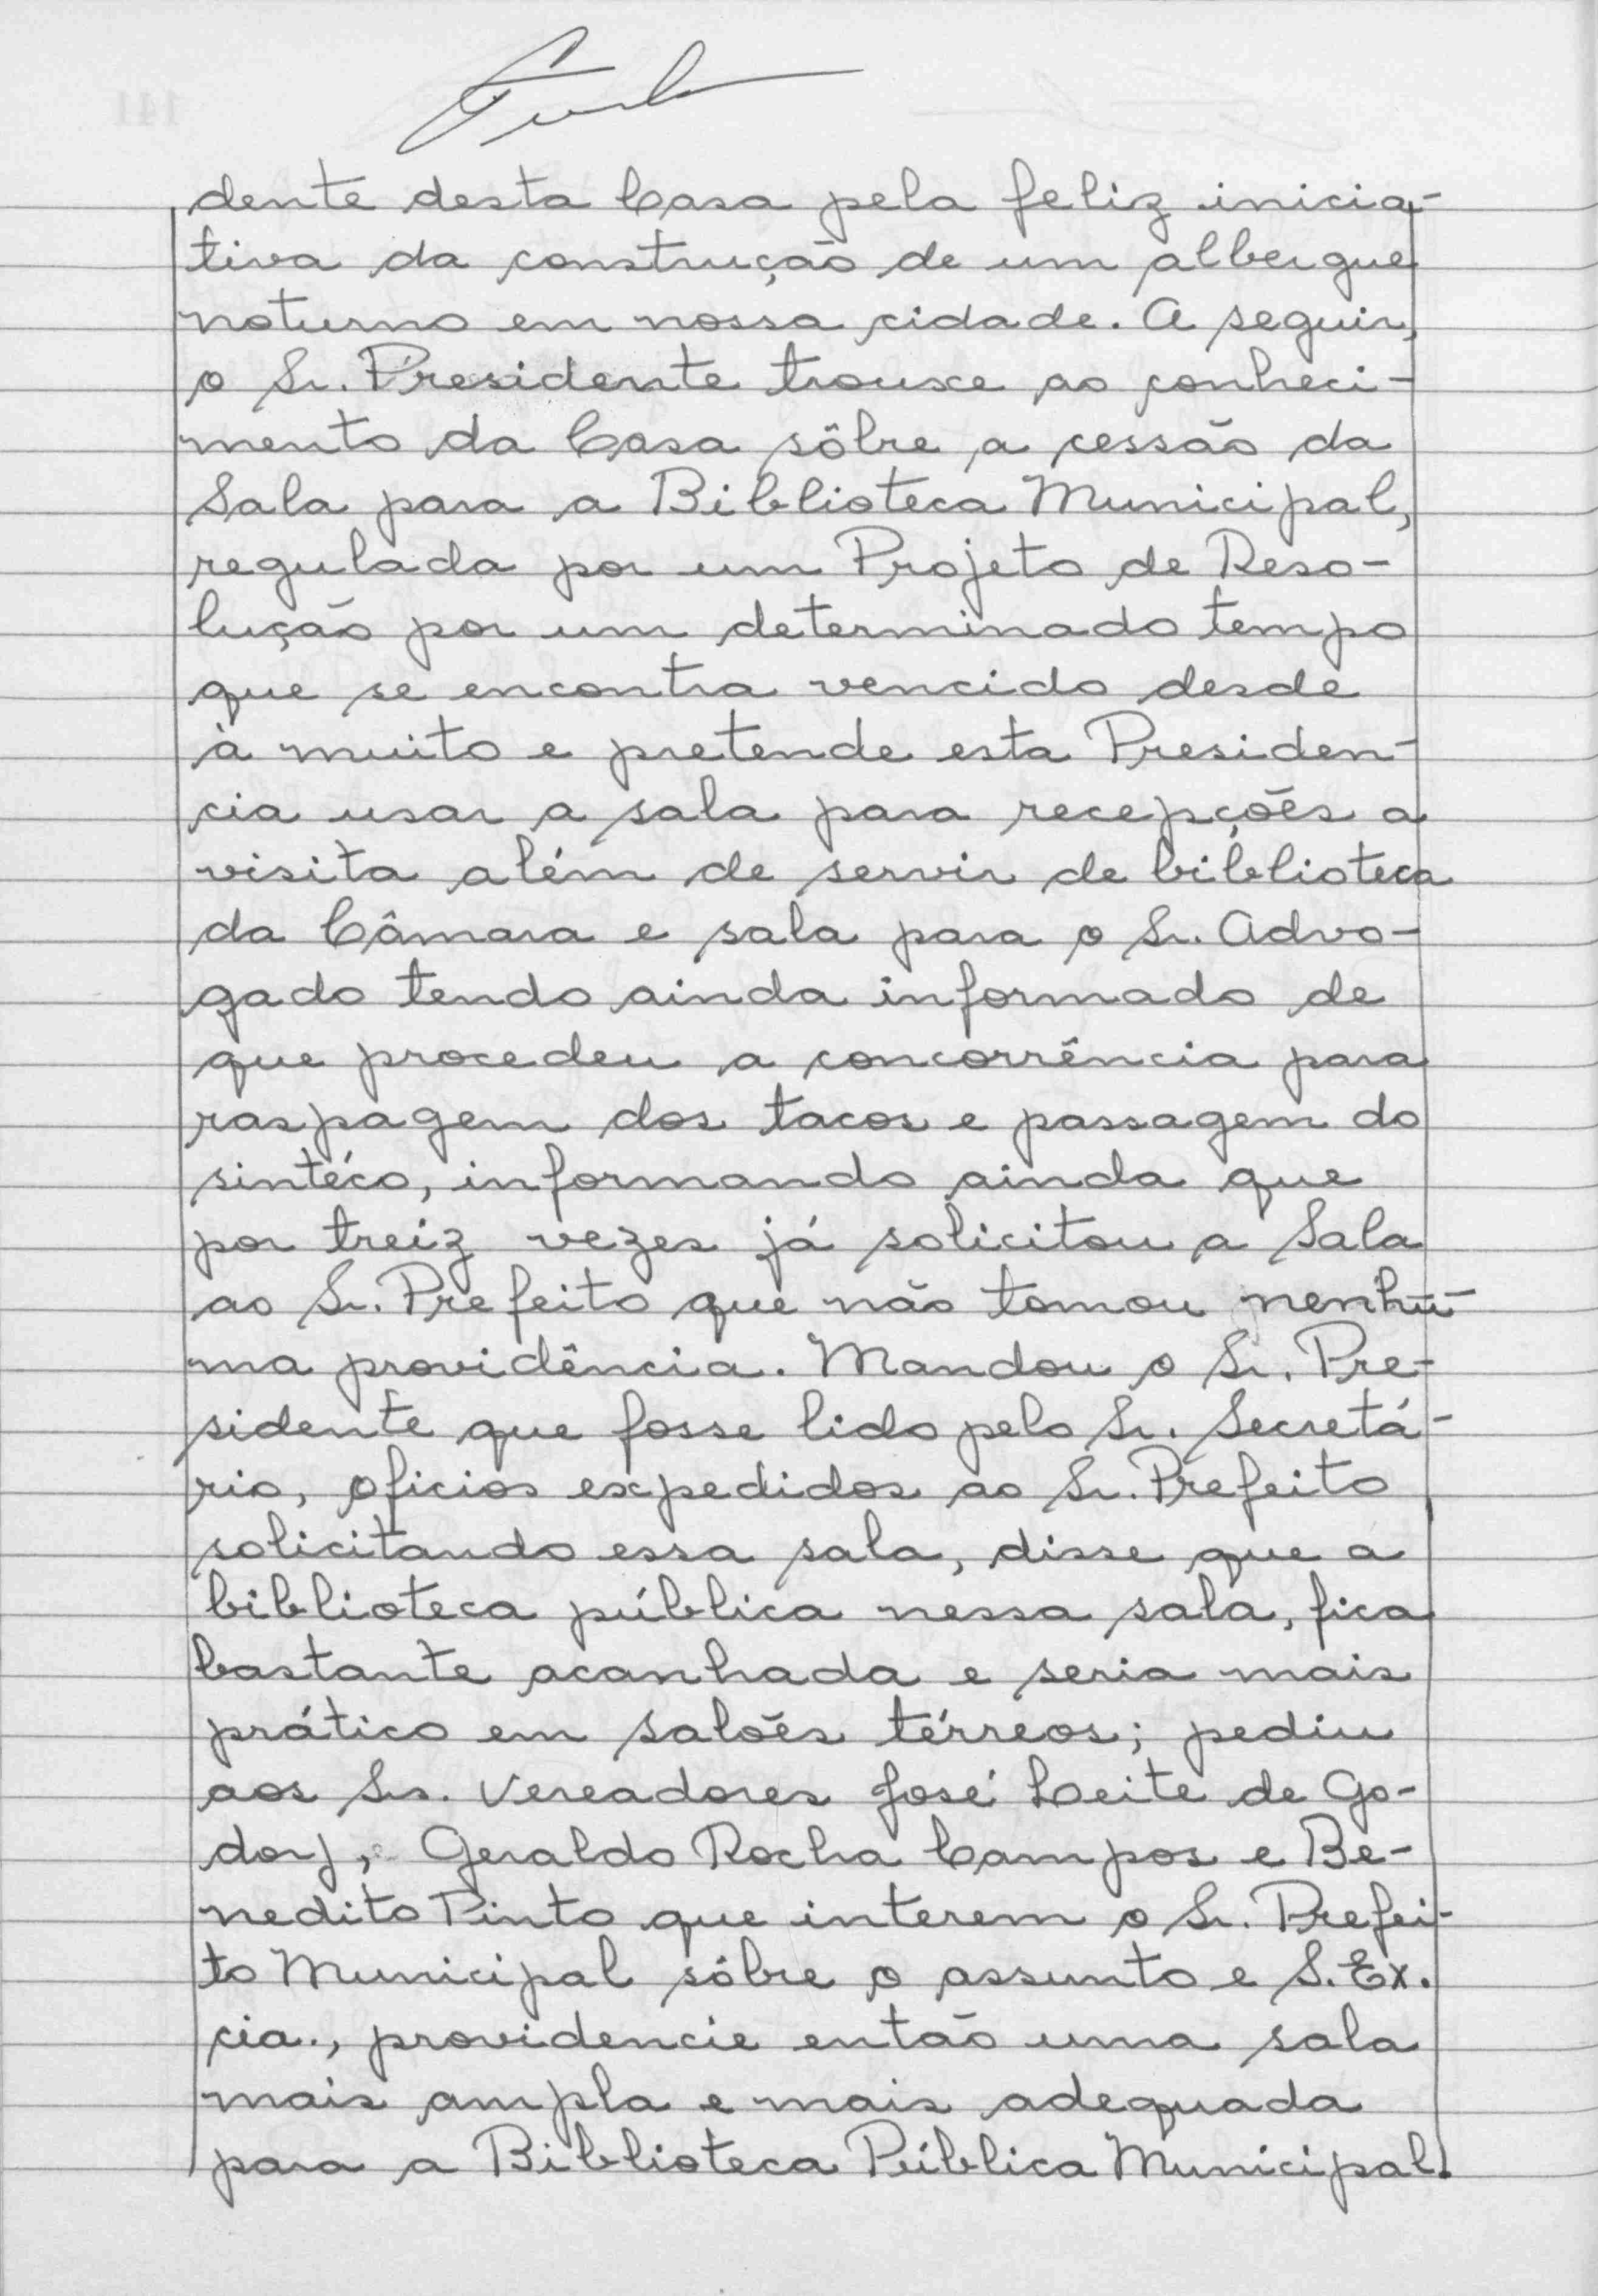 dente desta Casa pela feliz inicia-
tiva da construção de um albergue
noturno em nossa cidade. A seguir,
o Sr. Presidente trouxe ao conheci-
mento da Casa sôbre a cessão da
Sala para a Biblioteca Municipal,
regulada por um Projeto de Reso-
lução por um determinado tempo
que se encontra vencido desde
à muito e pretende esta Presiden-
cia usar a sala para recepções a
visita além de servir de biblioteca
da Câmara e sala para o Sr. Advo-
gado tendo ainda informado de
que procedeu a concorrência para
raspagem dos tacos e passagem do
sintéco, informando ainda que
por treiz vezes já solicitou a Sala
ao Sr. Prefeito que não tomou nenhu-
ma providência. Mandou o Sr. Pre-
sidente que fosse lido pelo Sr. Secretá-
rio, oficios expedidos ao Sr. Prefeito
solicitando essa sala, disse que a
biblioteca pública nessa sala, fica
bastante acanhada e seria mais
prático em salões térreos; pediu
aos Srs. Vereadores José Leite de Go-
doy, Geraldo Rocha Campos e Be-
nedito Pinto que interem o Sr. Prefei-
to Municipal sôbre o assunto e S. Ex.
cia., providencie então uma sala
mais ampla e mais adequada
para a Biblioteca Pública Municipal.